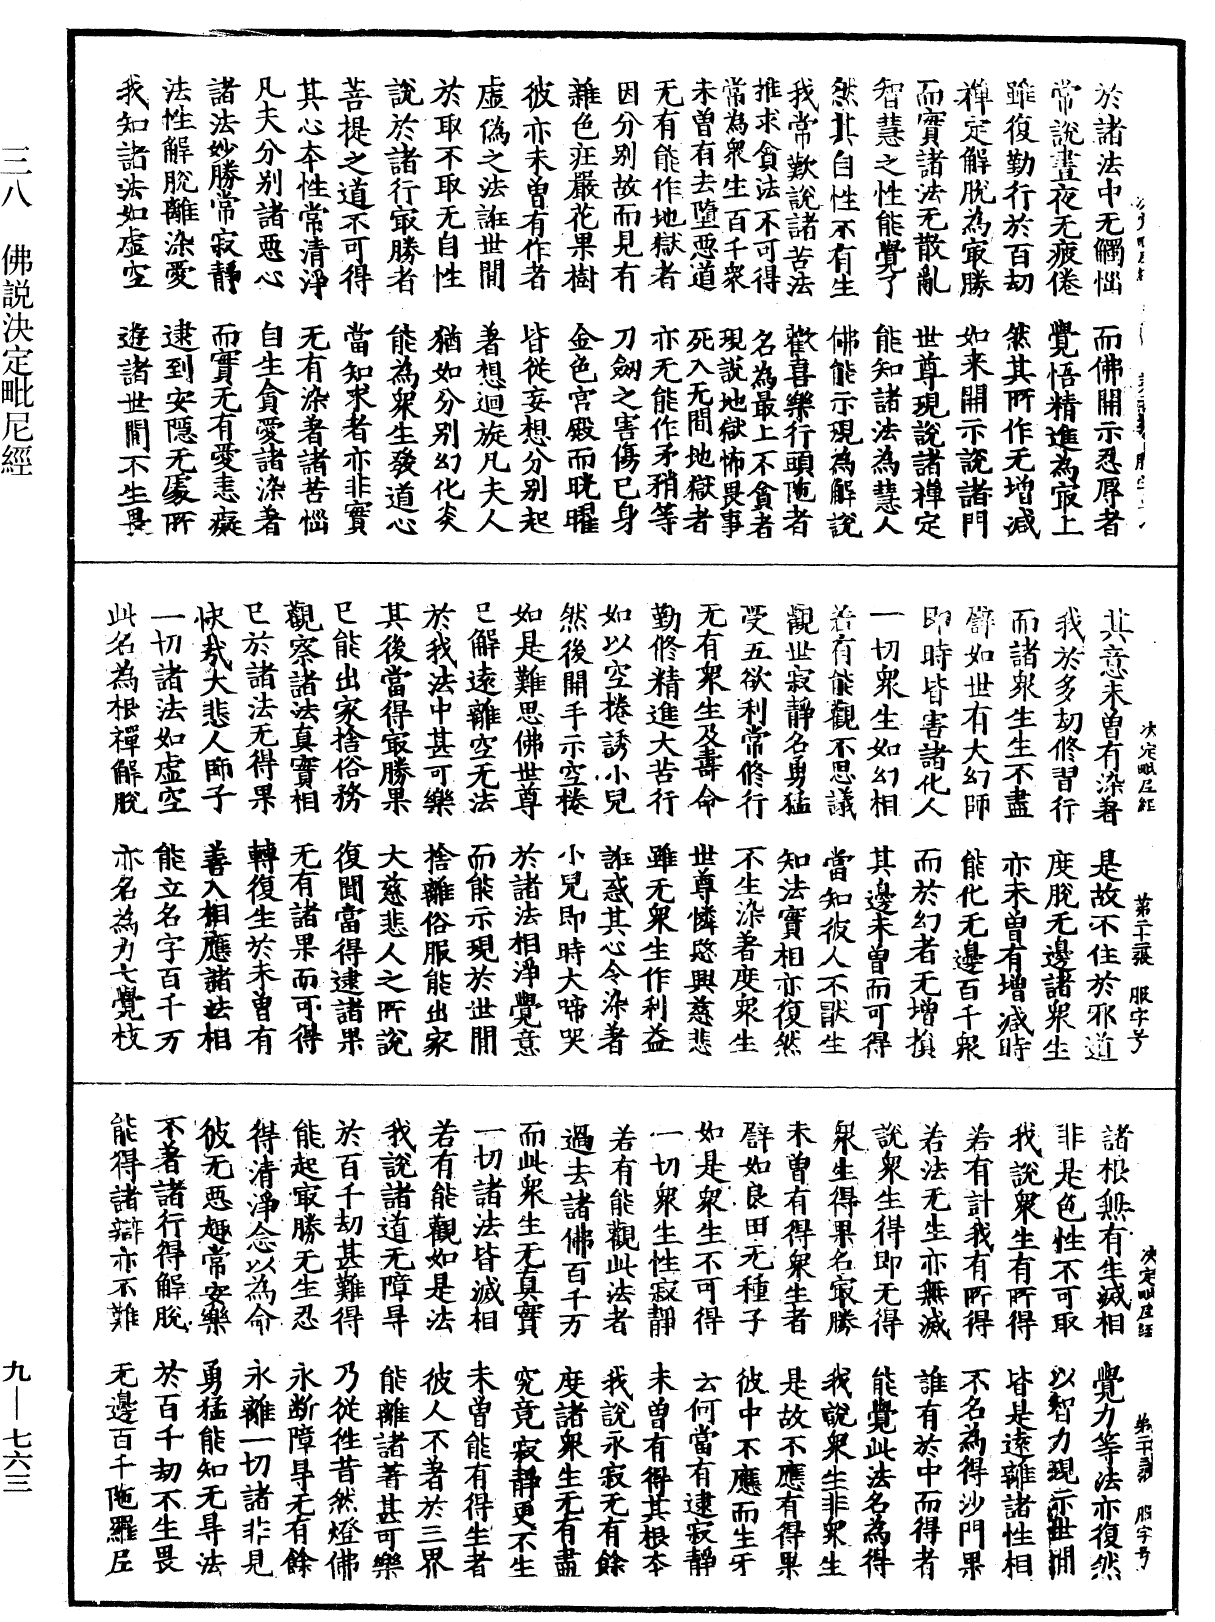 於諸法中无觸惱　而佛開示忍辱者
常說晝夜无疲倦　覺悟精進為㝡上
雖復勤行於百劫　然其所作无增減
禪定解脫為㝡勝　如来開示說諸門
而實諸法无散亂　世尊現說諸禪定
智慧之性能覺了　能知諸法為慧人
然其自性不有生　佛能示現為解說
我常歎說諸苦法　歡喜樂行頭陁者
推求貪法不可得　名為最上不貪者
常為衆生百千衆　現說地獄怖畏事
未曾有去墮惡道　死入无間地獄者
无有能作地獄者　亦无能作矛矟等
因分别故而見有　刀劒之害傷已身
雜色庄嚴花果樹　金色宮殿而晄曜
彼亦未曾有作者　皆從妄想分别起
虛偽之法誑世間　著想迴旋凡夫人
於取不取无自性　猶如分别幻化炎
說於諸行㝡勝者　能為衆生發道心
菩提之道不可得　當知求者亦非實
其心本性常清淨　无有染著諸苦惱
凡夫分别諸惡心　自生貪愛諸染著
諸法妙勝常寂靜　而實无有愛恚癡
法性解脫離染愛　逮到安隱无處所
我知諸法如虛空　遊諸世間不生畏
决定毗尼経　第二十二張　服字号
其意未曾有染著　是故不住於邪道
我於多劫修習行　度脫无邊諸衆生
而諸衆生生不盡　亦未曾有增減時
譬如世有大幻師　能化无邊百千衆
即時皆害諸化人　而於幻者无增損
一切衆生如幻相　其邊未曽而可得
若有能觀不思議　當知彼人不猒生
觀世寂靜名勇猛　知法實相亦復然
受五欲利常修行　不生染著度衆生
无有衆生及壽命　世尊憐愍興慈悲
勤修精進大苦行　雖无衆生作利益
如以空捲誘小兒　誑惑其心令染著
然後開手示空捲　小兒即時大啼哭
如是難思佛世尊　於諸法相淨覺意
已解遠離空无法　而能示現於世間
於我法中甚可樂　捨離俗服能出家
其後當得㝡勝果　大慈悲人之所說
已能出家捨俗務　復聞當得逮諸果
觀察諸法真實相　无有諸果而可得
已於諸法无得果　轉復生於未曽有
快哉大悲人師子　善入相應諸法相
一切諸法如虛空　能立名字百千万
此名為根禪解脫　亦名為力七覺枝
决定毗尼経　服字号
諸根無有生滅相　覺力等法亦復然
非是色性不可取　以智力現示世間
我說衆生有所得　皆是遠離諸性相
若有計我有所得　不名為得沙門果
若法无生亦無滅　誰有於中而得者
說衆生得即无得　能覺此法名為得
衆生得果名㝡勝　我說衆生非衆生
未曾有得衆生者　是故不應有得果
譬如良田无種子　彼中不應而生牙
如是衆生不可得　云何當有逮寂靜
一切衆生性寂靜　未曽有得其根本
若有能觀此法者　我說永寂无有餘
過去諸佛百千万　度諸衆生无有盡
而此衆生无真實　究竟寂靜更不生
一切諸法皆滅相　未曽能有得生者
若有能觀如是法　彼人不著於三界
我說諸道无障㝵　能離諸著甚可樂
於百千劫甚難得　乃從往昔然燈佛
能起㝡勝无生忍　永断障㝵无有餘
得清淨念以為命　永離一切諸非見
彼无惡趣常安樂　勇猛能知无㝵法
不著諸行得解脫　於百千劫不生畏
能得諸辯亦不難　无邊百千陁羅尼
三八　佛説決定毗尼經
九—七六三